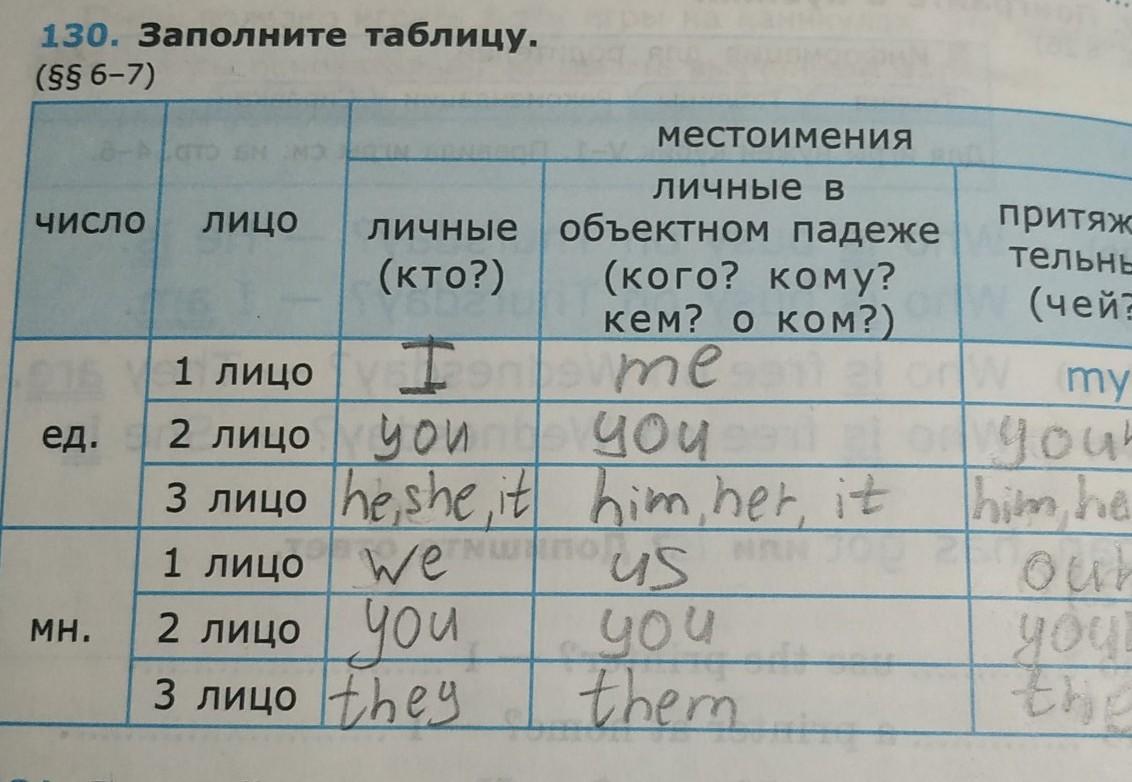 130. Заполните таблицу.
(§§ 6–7)
местоимения
число лицо личные (кто?)
личные в
объектном падеже
(кого? кому?
кем? о ком?)
притяж
тельны
(чей?
ед.
1 лицо I me my
2 лицо you you your
3 лицо he, she, it him, her, it him, he
мн.
1 лицо we us our
2 лицо you you you
3 лицо they them the